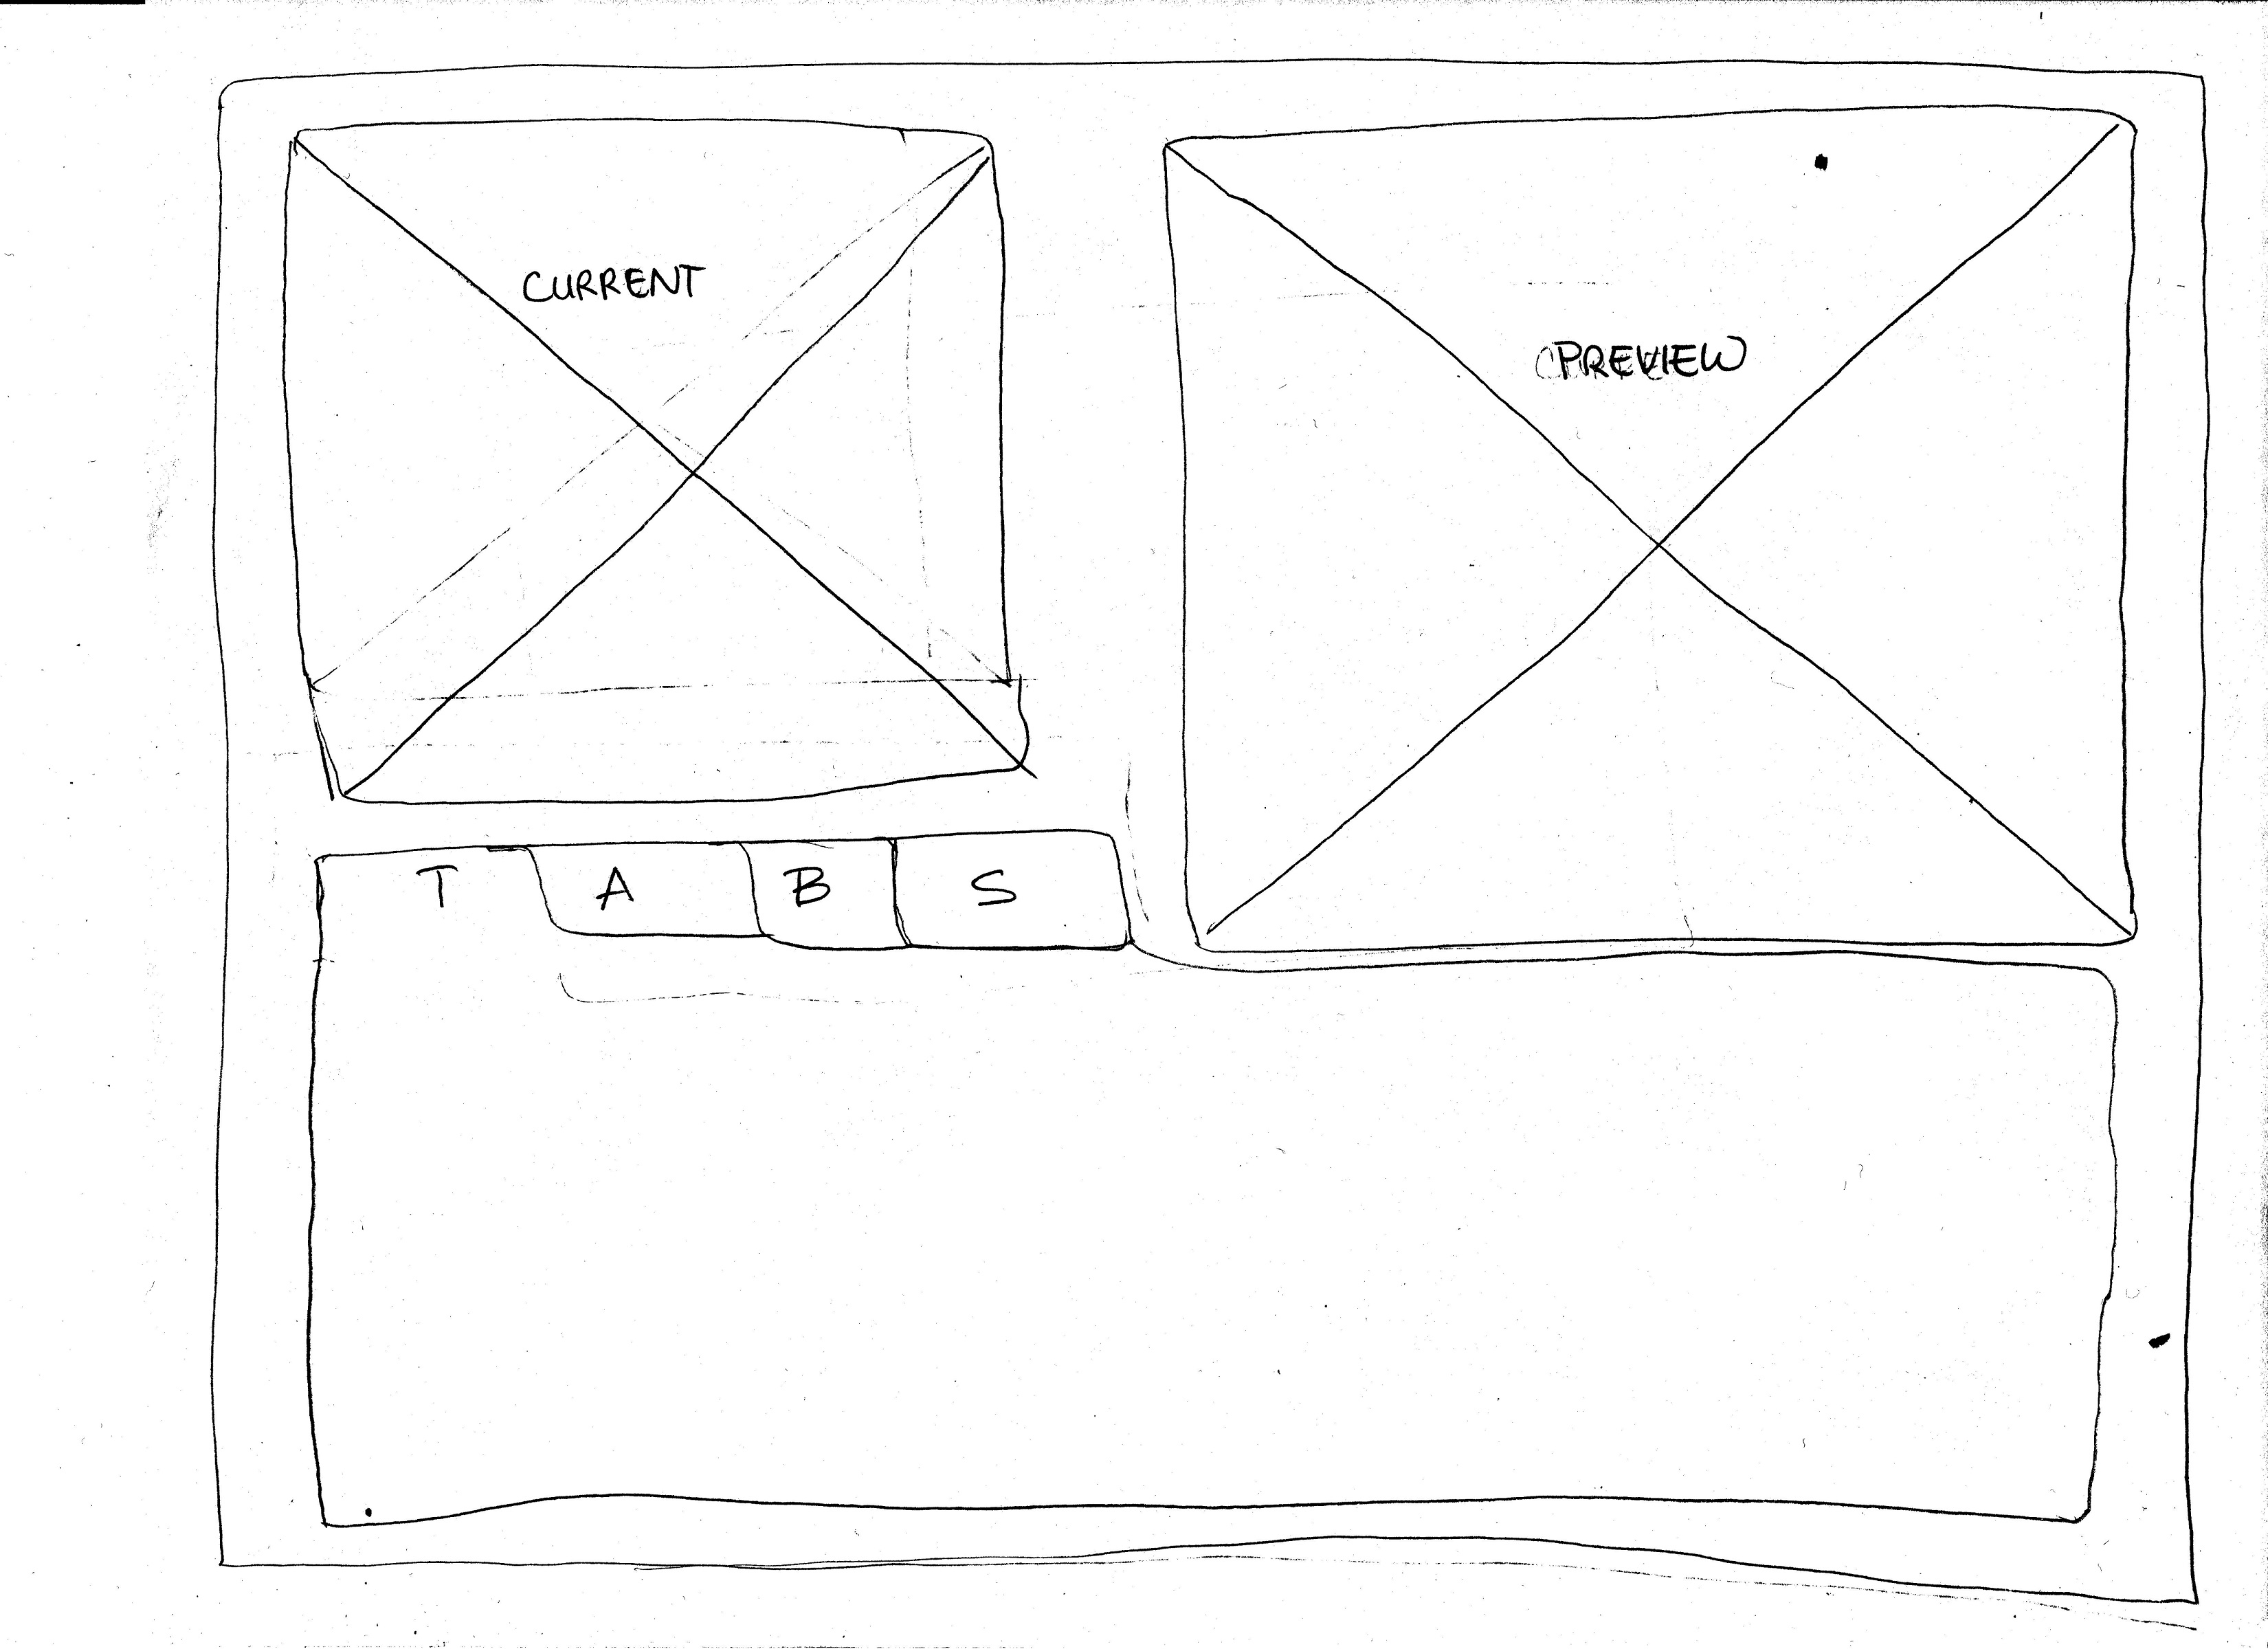 CURRENT
PREVIEW
T A B S